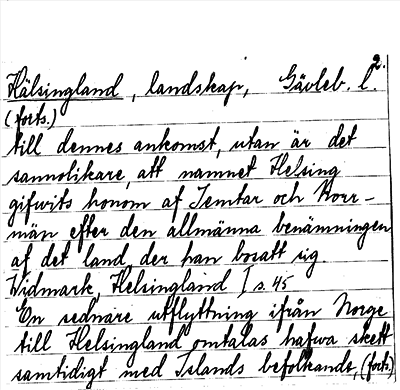 2.
Hälsingland, landskap, Gävleb. l.
(forts.)
till dennes ankomst, utan är det
sannolikare, att namnet Helsing
gifwits honom af Jemtar och Norr-
män efter den allmänna benämningen
af det land, der han bosatt sig.
Widmark, Helsingland I s. 45
En sednare utflyttning ifrån Norge
till Helsingland omtalas hafwa skett
samtidigt med Islands befolkande, (forts.)